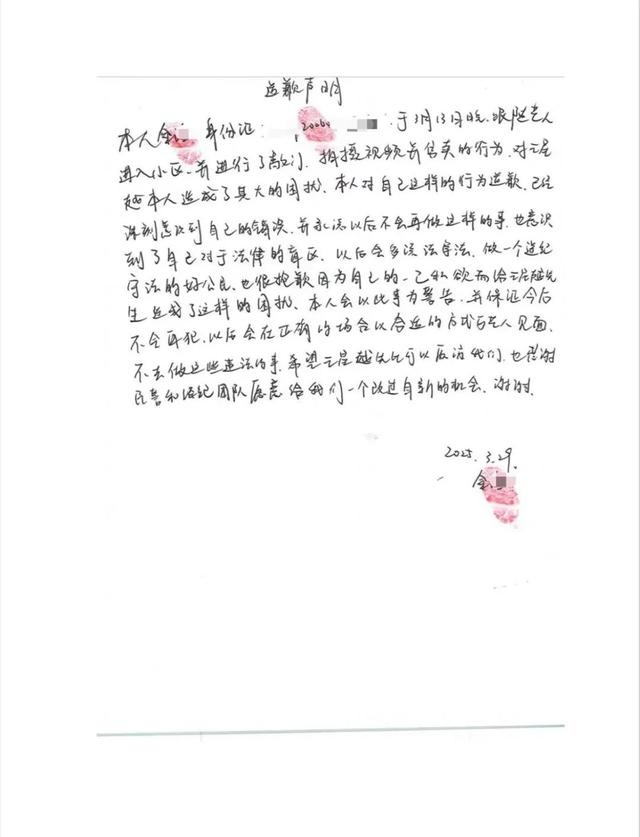 道歉声明
本人金 身份证 于3月13日晚跟随艺人
进入小区,并进行了敲门、拍摄视频并售卖的行为,对王星
越本人造成了莫大的困扰,本人对自己这样的行为道歉,已经
深刻意识到自己的错误,并永远以后不会再做这样的事,也意识
到了自己对于法律的盲区,以后会多读法守法,做一个遵纪
守法的好公民,也很抱歉因为自己的一己私欲而给王星越先
生造成了这样的困扰,本人会以此事为警告,并保证今后
不会再犯,以后会在正确的场合以合适的方式与艺人见面,
不去做这些违法的事,希望王星越先生予以原谅我们,也感谢
民警和经纪团队愿意给我们一个改过自新的机会,谢谢.
2025.3.29.
金